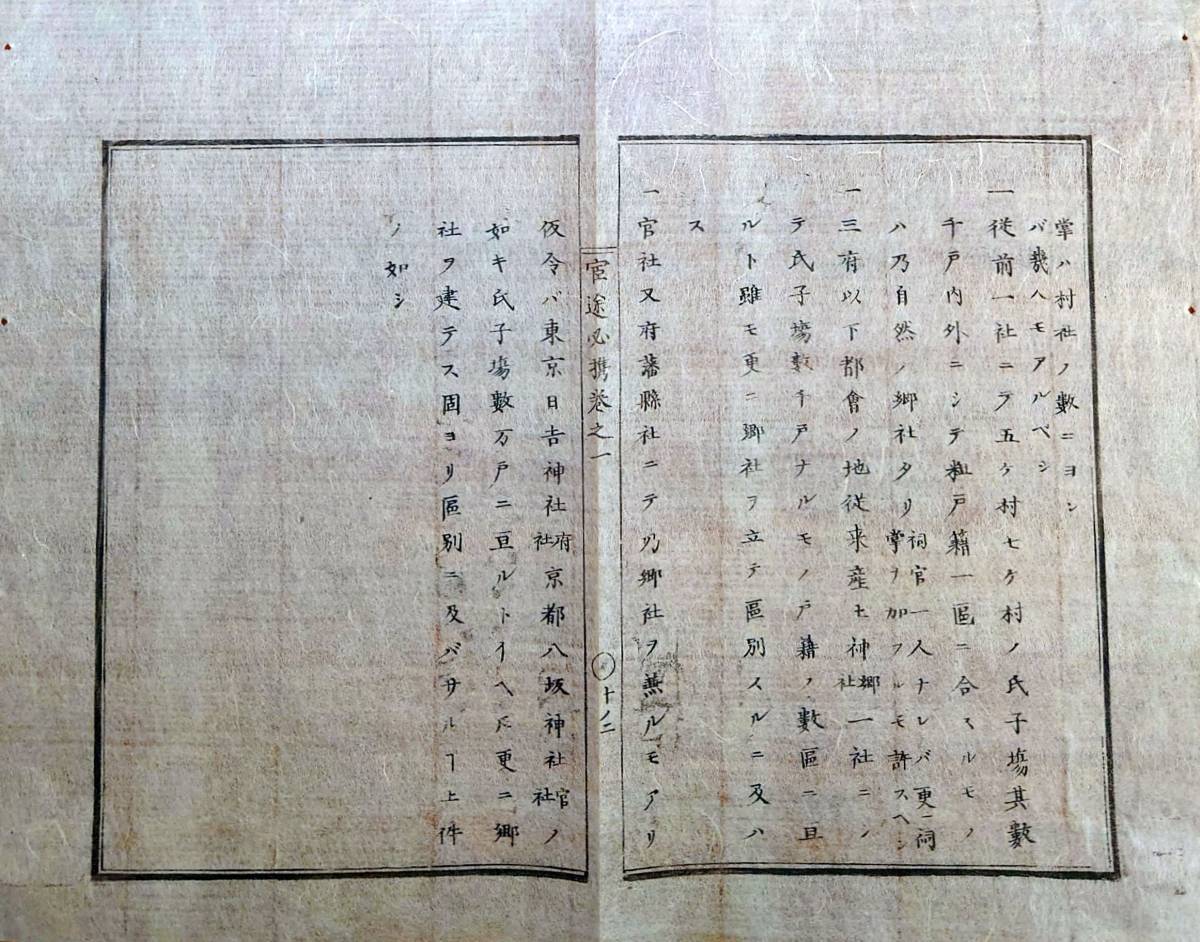 掌ハ村社ノ數ニヨン
バ幾人モアルベシ
一従前一社ニテ五ケ村七ケ村ノ氏子塲其數
千戸内外ニシテ粗戸籍一區ニ合スルモノ
ハ乃自然ノ郷社タリ祠官一人ナレバ更ニ祠
掌ヲ加フルモ許スヘシ
一三府以下都會ノ地従来産土神郷社一社ニノ
テ氏子塲數千戸ナルモノ戸籍ノ數區ニ亘
ルト雖モ更ニ郷社ヲ立テ區別スルニ及ハ
ス
一官社又府藩縣社ニテ乃郷社ヲ兼ルモアリ
官途必携巻之一
十ノ二
仮令バ東京日吉神社府社京都八坂神社官社ノ
如キ氏子塲數万戸ニ亘ルトイヘ𪜈更ニ郷
社ヲ建テス固ヨリ區別ニ及バサルヿ上件
ノ如シ